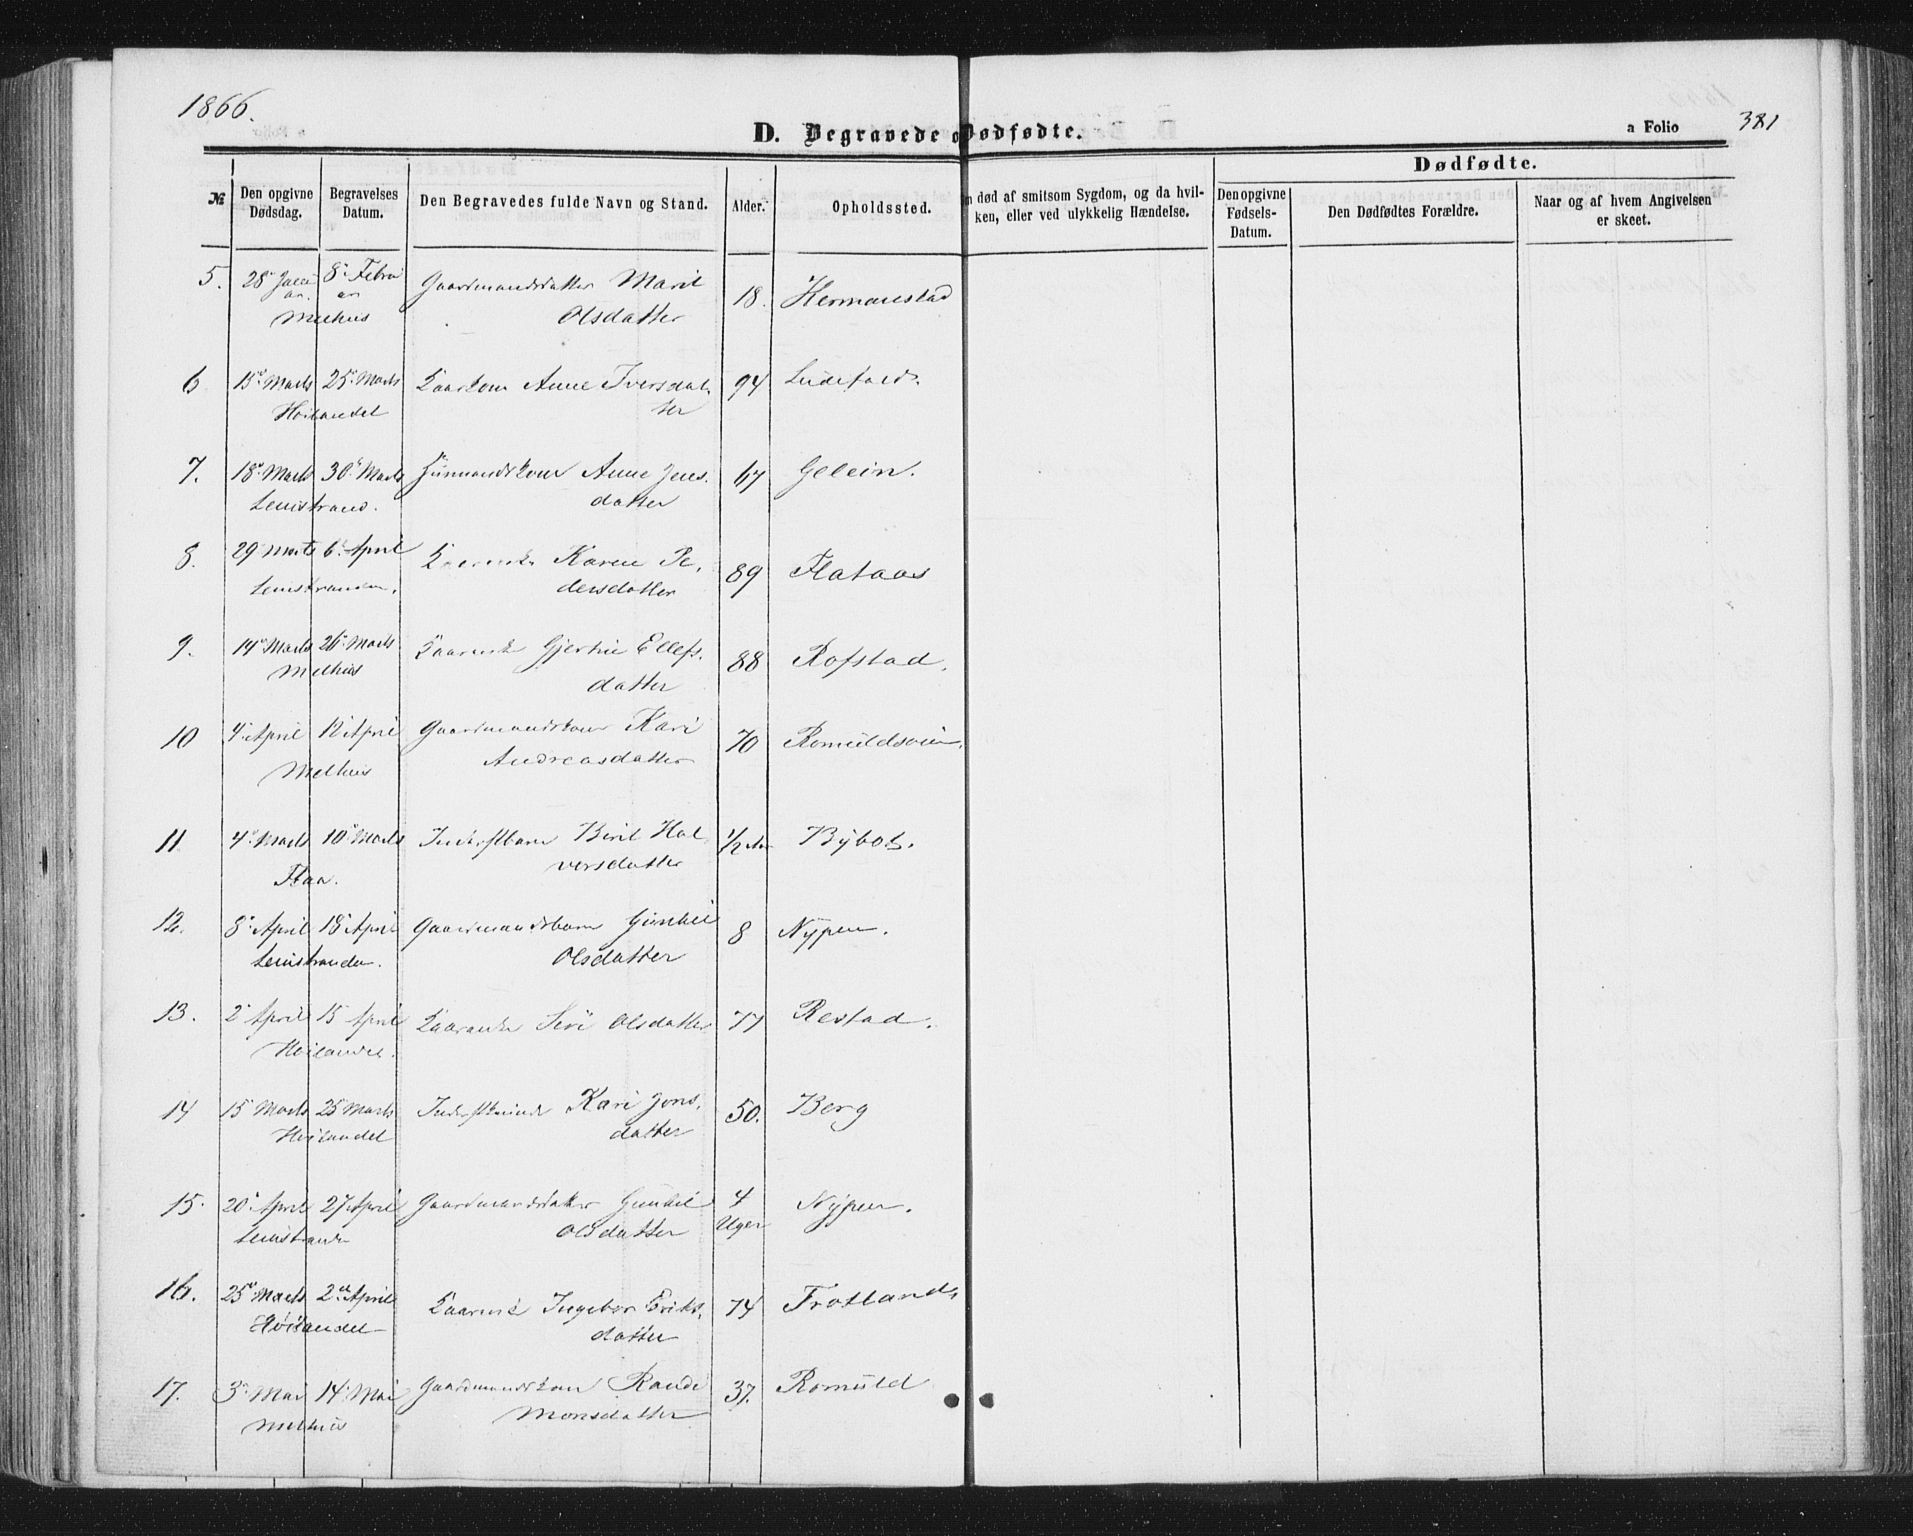 1866.
D. Begravede o Dødfødte.
a Folio 381
Dødfødte.
№ Den opgivne Dødsdag. Begravelses Datum. Den Begravedes fulde Navn og Stand. Alder. Opholdssted. død af smitsom Sygdom, og da hvilken, eller ved ulykkelig Hændelse. Den opgivne Fødsels-Datum. Den Dødfødtes Forældre. Naar og af hvem Angivelsen er skeet.
5. 28 8 Febru Gaardmandsdatter Marit 18. Hermanstad
ar. ar
Melhus Olsdatter
6 15 Marts 25 Marts Kaarkone Anne Iversdat- 94
Høilandet ter
7. 18 Marts 30 Marts Huusmandskone Anne Jens- 67
Leinstrand. datter
8. 29 Marts 6 April Karen Pe- 89 Flataas
Leinstranden. dersdatter
9. 14 Marts 26 Marts Gjertrue Ellefs- 88 Rofstad.
Melhus datter
10 4 April 12 April Gaardmandskone Kari 70 Romuldsøien.
Melhus Andreasdatter
11 4 Marts 10 Marts Inderstbarn Berit Hal- 1/2 Aar
Flaa. versdatter
12. 8 April 18 April Gaardmandsbarn Gunhil 8 Nypen.
Leinstranden. Olsdatter
13. 2 April 15 April Siri Olsdatter 77 Restad.
Høilandet.
14 15 Marts 25 Marts Inderstkvinde Kari Jons- 50. Berg
Høilandet datter
15. 20 April 27 April Gaardmandsdatter Gunhil 4 Nypen.
Leinstrande Olsdatter Uger
16. 25 Marts 2 April Ingebor Eriks- 74 Frøtland.
Høilandet datter
17. 3 Mai 14 Mai Gaardmandskone Randi 37. Romuld
Melhus Monsdatter